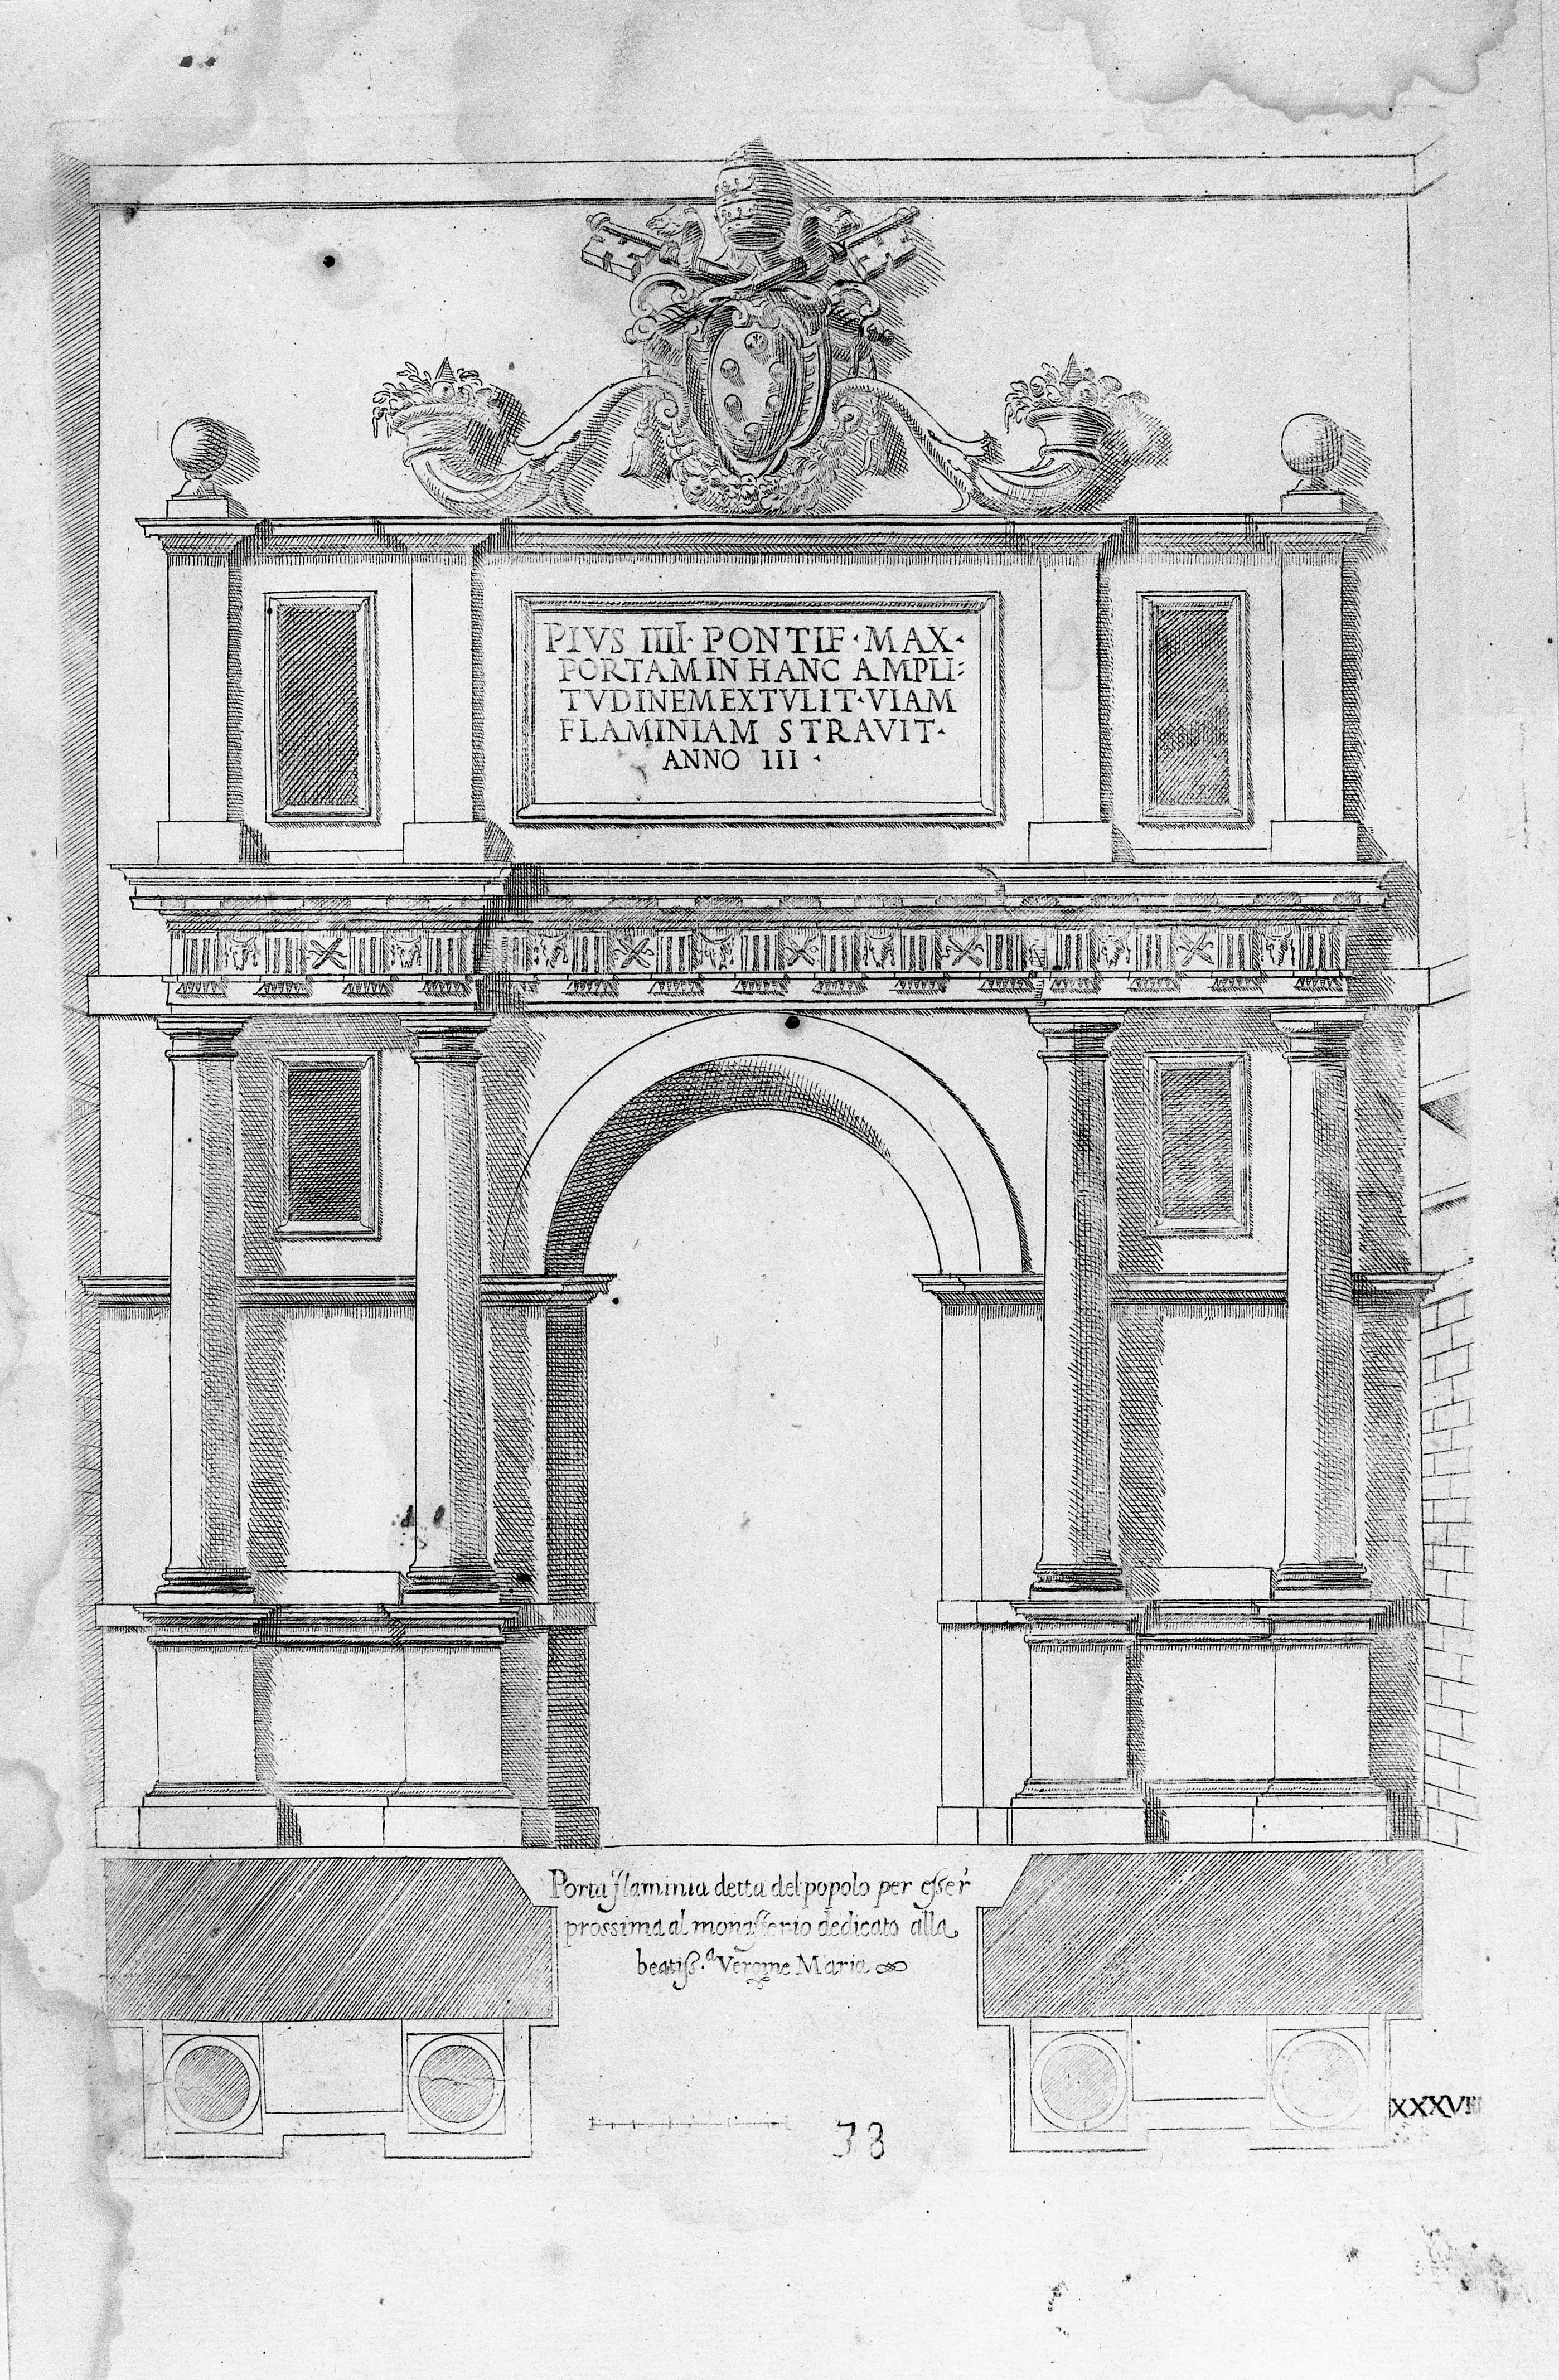 PIVS IIII · PONTIF · MAX ·
PORTAM IN HANC AMPLI:
TVDINEM EXTVLIT · VIAM
FLAMINIAM STRAVIT ·
ANNO III ·
Porta flaminia detta del popolo per esser
prossima al monasterio dedicato alla
beatiss.ª Vergine Maria
38
XXXVIII